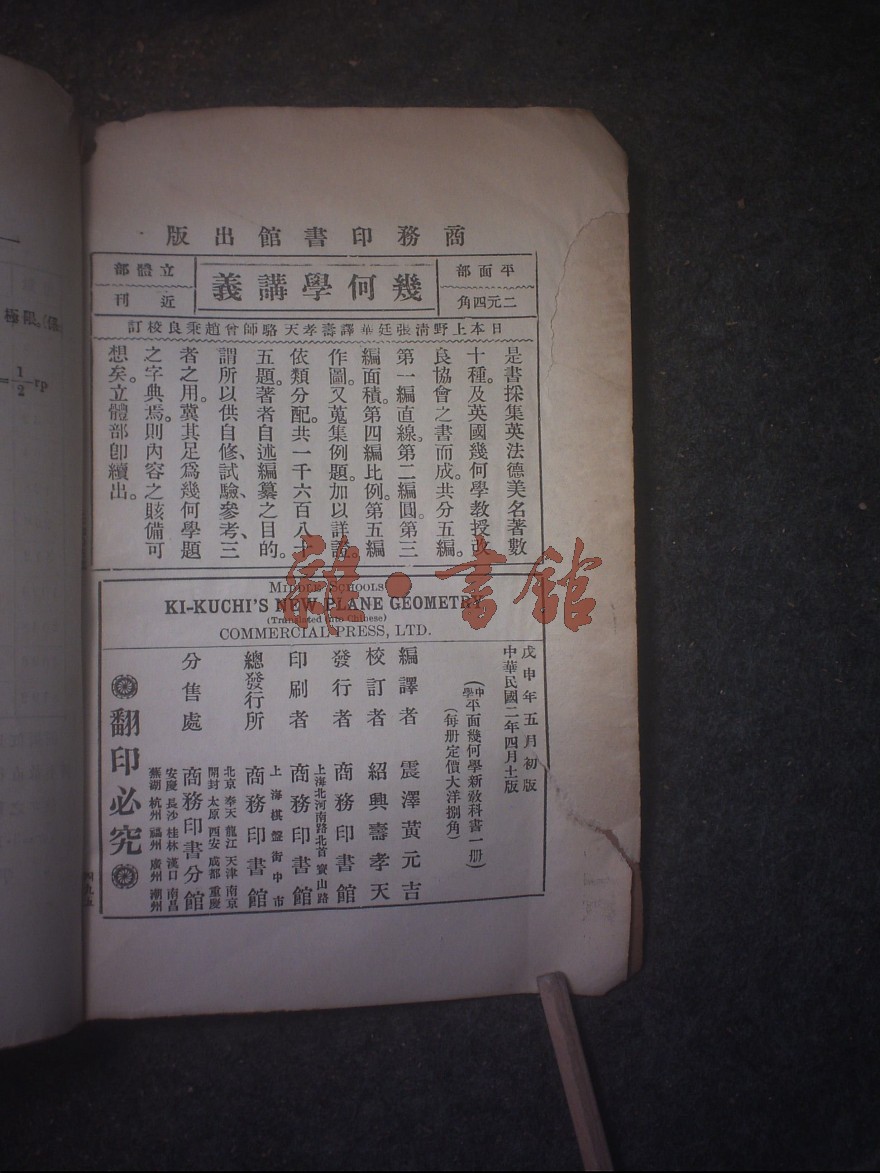 商務印書館出版
平面部
二元四角
幾何學講義
立體部
近刊
日本上野清張廷華譯壽孝天駱師曾趙秉良校訂
是書採集英法德美名著數
十種。及英國幾何學教授改
良協會之書而成。共分五編。
第一編直線。第二編圓。第三
編面積。第四編比例。第五編
作圖。又蒐集例題。加以詳說。
依類分配。共一千六百八十
五題。著者自述編纂之目的。
謂所以供自修、試驗、參考、三
者之用。冀其足爲幾何學題
之字典焉。則內容之賅備可
想矣。立體部卽續出。
MIDDLE SCHOOLS
KI-KUCHI'S NEW PLANE GEOMETRY
(Translated into Chinese)
COMMERCIAL PRESS, LTD.
戊申年五月初版
中華民國二年四月十二版
(中學平面幾何學新教科書一册)
(每册定價大洋捌角)
編譯者 震澤黃元吉
校訂者 紹興壽孝天
發行者 商務印書館
上海北河南路北首寶山路
印刷者 商務印書館
上海棋盤街中市
總發行所 商務印書館
北京 奉天 龍江 天津 南京
開封 太原 西安 成都 重慶
分售處 商務印書分館
安慶 長沙 桂林 漢口 南昌
蕪湖 杭州 福州 廣州 潮州
翻印必究
四九五
極限。(係)
=1/2 rp
書館